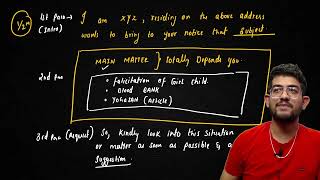 1/2 m
1st Para → I am xyz, residing on the above address
(Intro) wants to bring to your notice that Subject.
MAIN MATTER } Totally Depends You.
2nd Para
• Felicitation of Girl Child.
• Blood BANK
• (Article)
3rd Para (Request) So, kindly look into this situation
or matter as soon as possible & a
Suggestion.